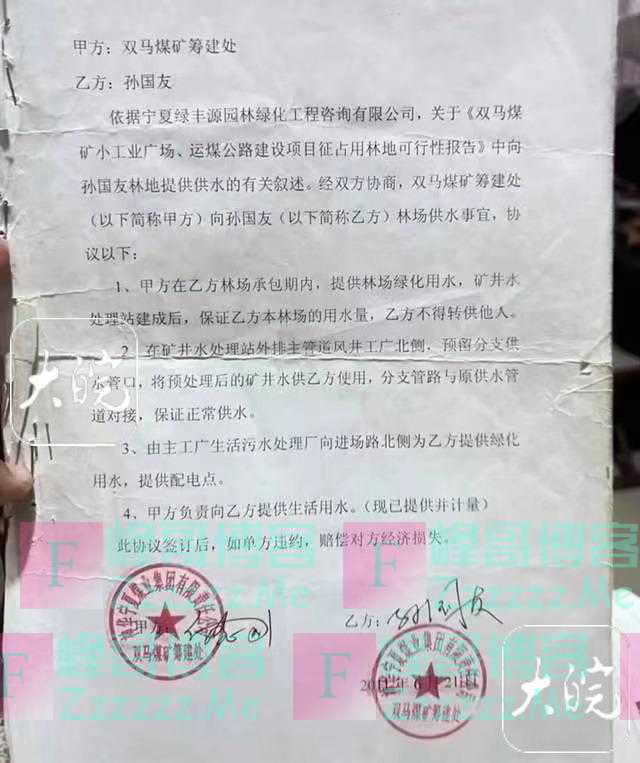 甲方：双马煤矿筹建处
乙方：孙国友
依据宁夏绿丰源园林绿化工程咨询有限公司，关于《双马煤
矿小工业广场、运煤公路建设项目征占用林地可行性报告》中向
孙国友林地提供供水的有关叙述。经双方协商，双马煤矿筹建处
（以下简称甲方）向孙国友（以下简称乙方）林场供水事宜，协
议以下：
1、甲方在乙方林场承包期内，提供林场绿化用水，矿井水
处理站建成后，保证乙方本林场的用水量，乙方不得转供他人。
2、在矿井水处理站外排主管道风井工广北侧，预留分支供
水管口，将预处理后的矿井水供乙方使用，分支管路与原供水管
道对接，保证正常供水。
大皖
3、由主工广生活污水处理厂向进场路北侧为乙方提供绿化
用水，提供配电点。
4、甲方负责向乙方提供生活用水。（现已提供并计量）
此协议签订后，如单方违约，赔偿对方经济损失。
F 峰哥博客
Zzzzzz.Me
F 峰哥博客
Zzzzzz.Me
甲方：
乙方：孙国友
神华宁夏煤业集团有限责任公司
双马煤矿筹建处
月21日
双马煤矿筹建处
大皖